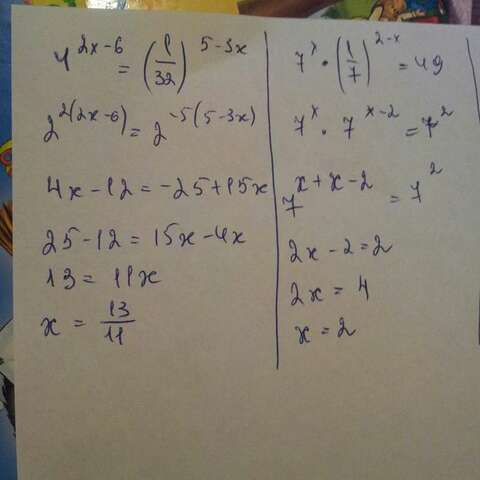 4^{2x-6} = (1/32)^{5-3x}
2^{2(2x-6)} = 2^{-5(5-3x)}
4x-12 = -25+15x
25-12 = 15x-4x
13 = 11x
x = 13/11
7^x · (1/7)^{2-x} = 49
7^x · 7^{x-2} = 7^2
7^{x+x-2} = 7^2
2x-2=2
2x = 4
x = 2